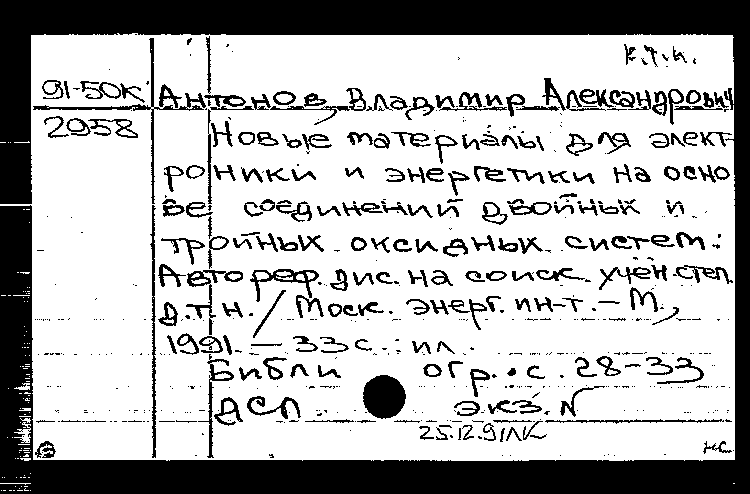 к.т.н.
91-50К Антонов, Владимир Александрович
2958 Новые материалы для элект-
роники и энергетики на осно
ве соединений двойных и
тройных оксидных систем:
Автореф. дис. на соиск. учён. степ.
д.т.н. / Моск. энерг. ин-т. – М.,
1991. – 33 с. : ил.
Библиогр. с. 28-33
ДСП. экз. №
25.12.91